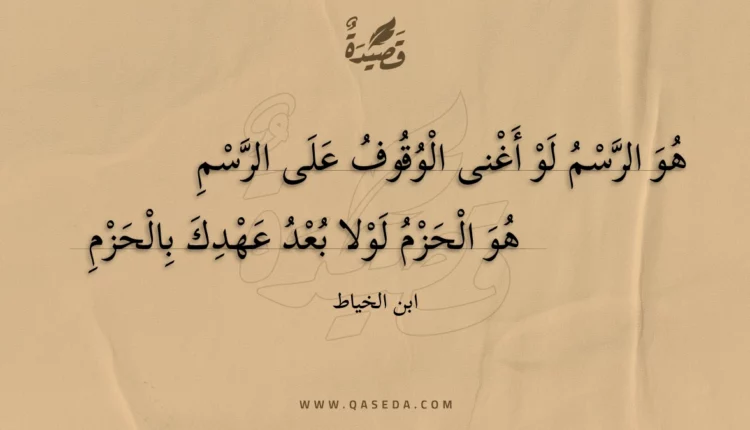 قَصِيدَةٌ
هُوَ الرَّسْمُ لَوْ أَغْنى الْوُقُوفُ عَلَى الرَّسْمِ
هُوَ الْحَزْمُ لَوْلا بُعْدُ عَهْدِكَ بِالْحَزْمِ
ابن الخياط
WWW.QASEDA.COM